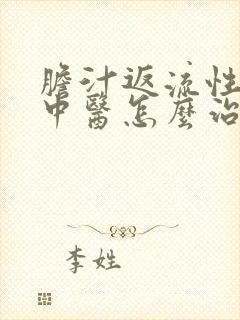 膽汁返流性
中醫怎麼治
李姓